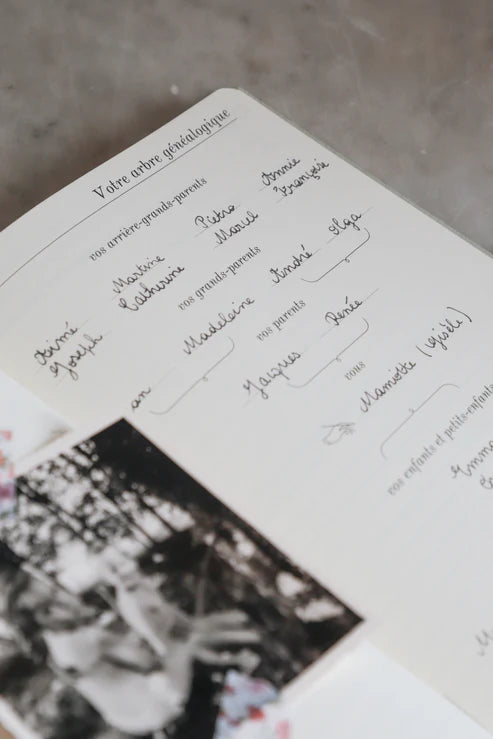 Votre arbre généalogique
vos arrière-grands-parents
Aimé Martine Pietro Annie
Joseph Catherine Marcel François
vos grands-parents
an Madeleine André Olga
vos parents
Jacques Renée
vous
Mamiotte (Gisèle)
vos enfants et petits-enfants
Emma